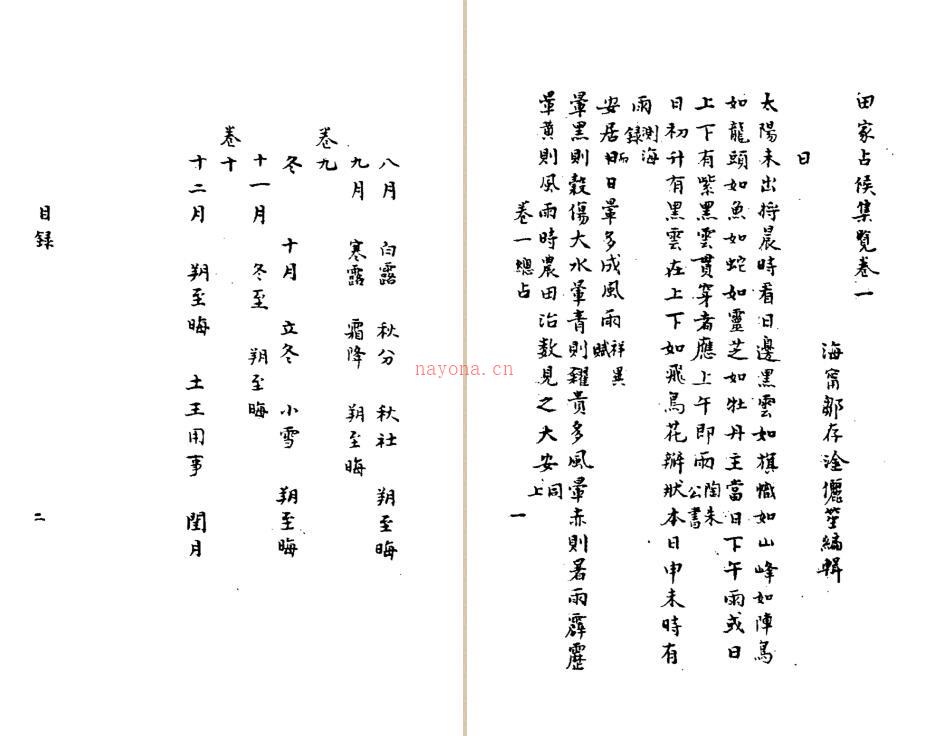 田家占候集覽卷一
海甯鄒存淦儷笙編輯
日
太陽未出將晨時看日邊黑雲如旗幟如山峰如陣鳥
如龍頭如魚如蛇如靈芝如牡丹主當日下午雨或日
上下有紫黑雲貫穿者應上午即雨陶朱公書
日初升有黑雲在上下如飛鳥花瓣狀本日申未時有
雨測海錄
安居日日暈多成風雨祥異賦
暈黑則穀傷大水暈青則糴貴多風暈赤則暑雨霹靂
暈黄則風雨時農田治數見之大安同上
卷一總占
一
八月 白露 秋分 秋社 朔至晦
九月 寒露 霜降 朔至晦
卷九
冬 十月 立冬 小雪 朔至晦
十一月 冬至 朔至晦
卷十
十二月 朔至晦 土王用事 閏月
目録
二
nayona.cn